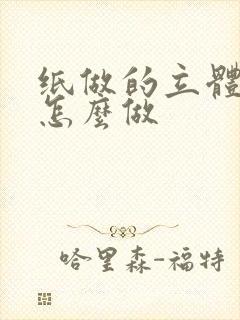 纸做的立體
怎麼做
哈里森-福特